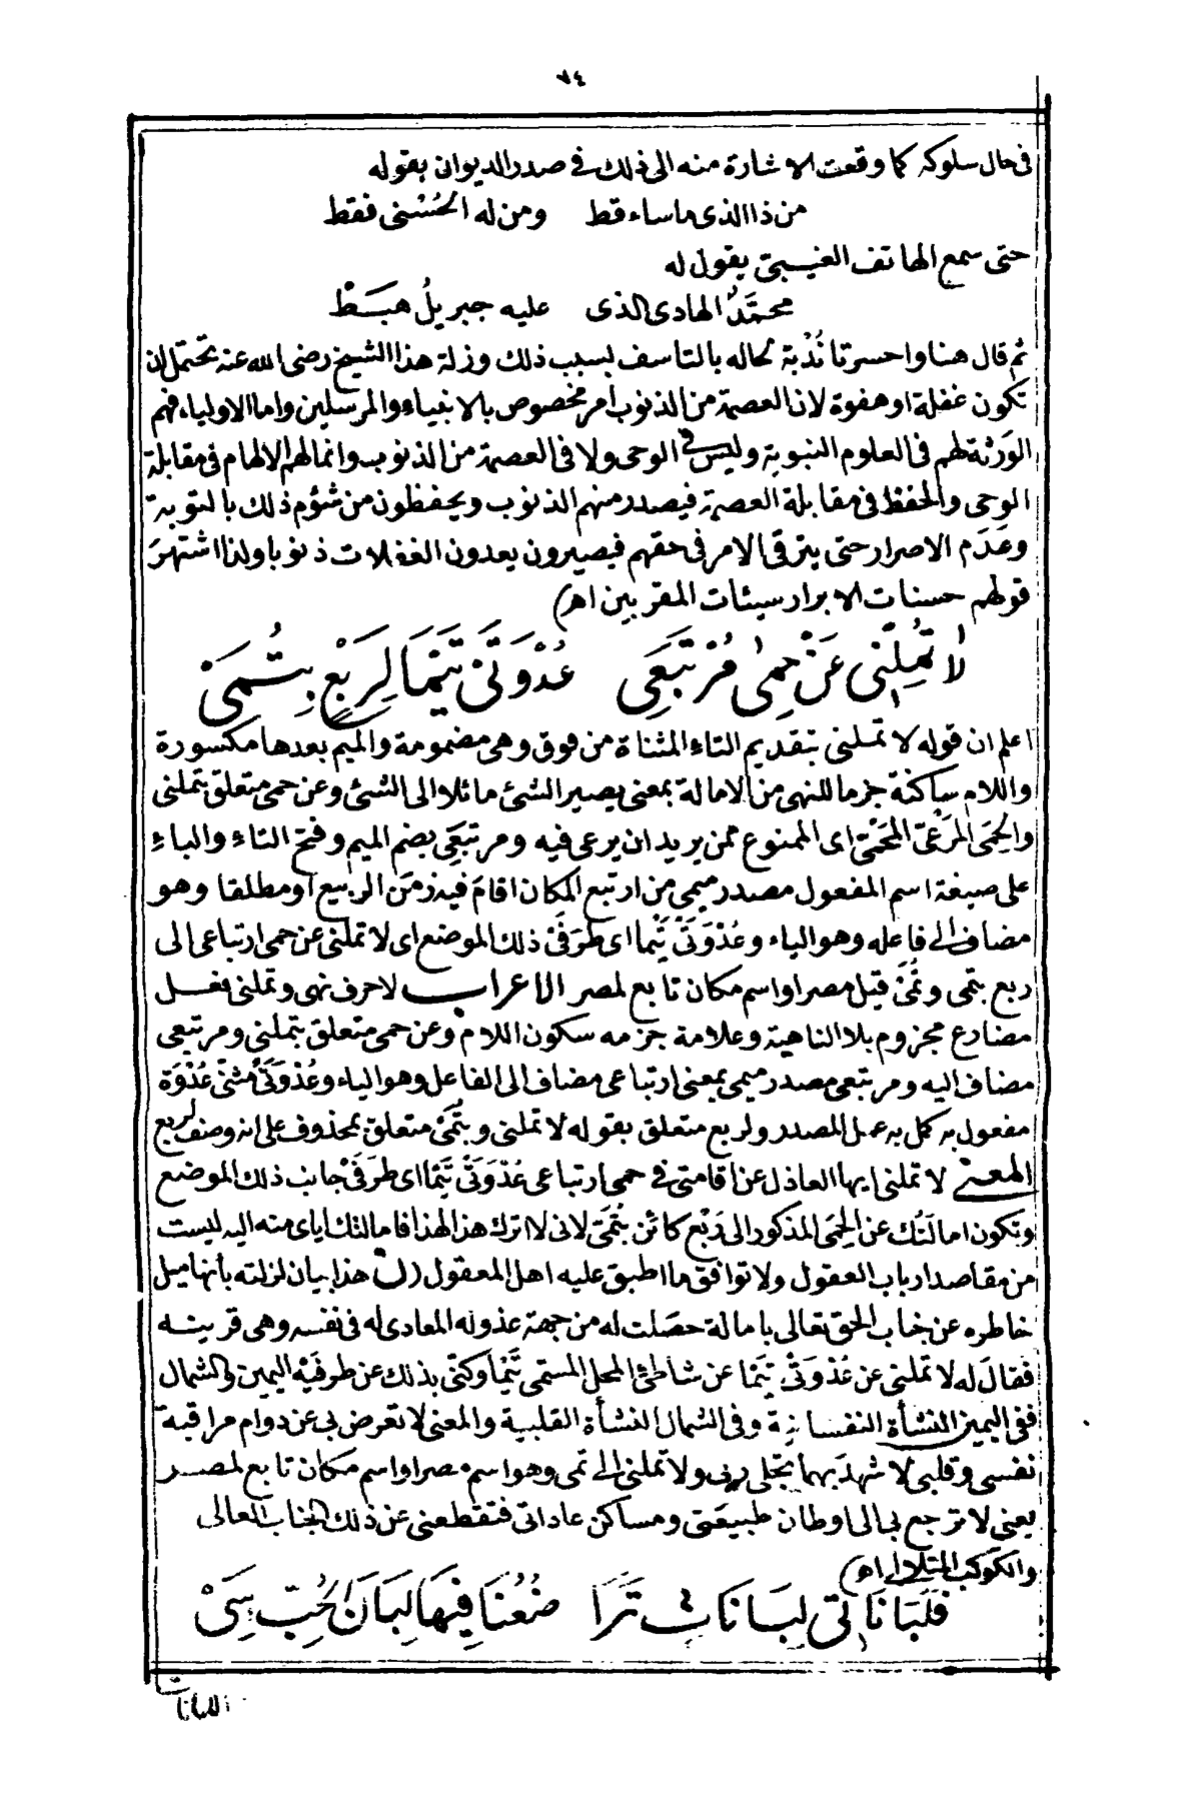 ٧٤
في حال سلوكه كما وقعت الاشارة منه الى ذلك في صدر الديوان بقوله
من ذا الذى ما ساء قط ومن له الحُسْنى فقط
حتى سمع الهاتف الغيبىّ يقول له
محمّدُ الهادى الذى عليه جبريلُ هبَطْ
ثم قال هنا واحسرتا نُدْبة لحاله بالتاسف بسبب ذلك وزلة هذا الشيخ رضى الله عنه تحتمل ان
تكون غفلة او هفوة لان العصمة من الذنوب أمر مخصوص بالانبياء والمرسلين واما الاولياء فهم
الوَرَثة لهم فى العلوم النبوية وليس فى الوحى ولا فى العصمة من الذنوب وانما لهم الالهام فى مقابلة
الوحى والحفظ فى مقابلة العصمة فيصدر منهم الذنوب ويحفظون من شؤم ذلك بالتوبة
وعَدَم الاصرار حتى يترقى الامر فى حقهم فيصيرون يعدون الغفلات ذنوبا ولذا اشتهرَ
قولهم حسنات الابرار سيئات المقربين اهـ)
لا تُمِلْنى عَنْ حِمى مُرْتَبَعِى عُدْوَتَىْ تَيْمَا لِرَبْعٍ بِتُمَىْ
اعلم ان قوله لا تملنى بتقديم التاء المثناة من فوق وهى مضمومة والميم بعدها مكسورة
واللام ساكنة جزما للنهى من الامالة بمعنى يصير الشئ مائلا الى الشئ وعن حمى متعلق بتملنى
والحِمَى المَرْعَىّ المَحْمىّ اى الممنوع ممن يريد ان يرعى فيه ومرتبعَى بضم الميم وفتح التاء والباء
على صيغة اسم المفعول مصدر ميمى من ارتبع المكان اقامَ فيه زمَن الربيع او مطلقا وهو
مضاف الى فاعله وهو الياء وعُدْوَتَىْ تَيْما اى طَرَفَىْ ذلك الموضع اى لا تملنى عن حمى ارتباعى الى
ربع بتمى وتُمَىْ قيل مصر او اسم مكان تابع لمصر الاعراب لا حرف نهى وتملنى فعل
مضارع مجزوم بلا الناهية وعلامة جزمه سكون اللام وعن حمى متعلق بتملنى ومرتبعى
مضاف اليه ومرتبعى مصدر ميمى بمعنى ارتباعى مضاف الى الفاعل وهو الياء وعُدْوَتَىْ مثنى عُدْوَة
مفعول به كمل به عمل المصدر ولربع متعلق بقوله لا تملنى وبتُمَىْ متعلق بمحذوف على انه وصف لربع
المعنى لا تملنى ايها العاذل عن اقامتى فى حمى ارتباعى عُدْوَتَىْ تَيْما اى طَرَفَىْ جانب ذلك الموضع
وتكون امالَتُك عن الحِمَى المذكور الى رَبْع كائن بتُمَىْ لانى لا اترك هذا لهذا فامالتك اياى منه اليه ليست
من مقاصد ارباب العقول ولا توافق ما اطبق عليه اهل المعقول (ن هذا بيان لزلته بأنها ميل
خاطره عن جناب الحق تعالى بامالة حصَلت له من جهة عذوله المعادى له فى نفسه وهى قرينه
فقالَ له لا تملنى عن عُدْوَتَىْ تيمَا عن شاطئ المحل المسمى تَيْما وكنَى بذلك عن طرفَيْه اليمين والشمال
ففى اليمين النشأة النفسانية وفى الشمال النشأة القلبية والمعنى لا تعرض بى عن دوام مراقبة
نفسى وقلبى لاشهد بهما تجلى ربى ولا تملنى الى تمى وهو اسم مصر او اسم مكان تابع لمصر
يعنى لا ترجع بى الى اوطان طبيعَتى ومساكن عاداتى فتقطعنى عن ذلك الجناب العالى
والكوكب المتلالى اهـ)
فَلَبَانَاتِى لِبَانَاتٍ تَرَا ضُعُنَا فِيهَا لِبَانَ الحُبِّ سَىْ
اللبانات